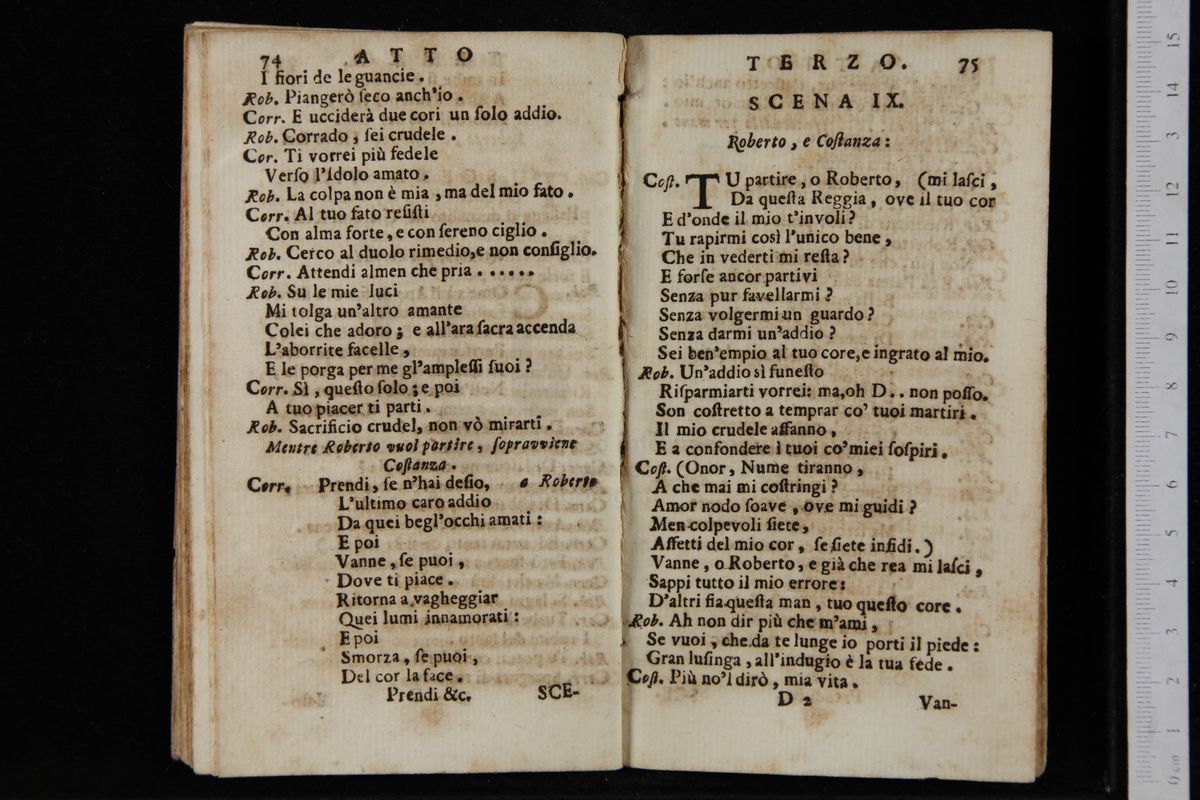 74 ATTO
I fiori de le guancie.
Rob. Piangerò ſeco anch'io.
Corr. E ucciderà due cori un ſolo addio.
Rob. Corrado, ſei crudele.
Cor. Ti vorrei più fedele
Verſo l'Idolo amato.
Rob. La colpa non è mia, ma del mio fato.
Corr. Al tuo fato reſiſti
Con alma forte, e con ſereno ciglio.
Rob. Cerco al duolo rimedio,e non conſiglio.
Corr. Attendi almen che pria......
Rob. Su le mie luci
Mi tolga un'altro amante
Colei che adoro; e all'ara ſacra accenda
L'aborrite facelle,
E le porga per me gl'ampleſſi ſuoi?
Corr. Sì, queſto ſolo; e poi
A tuo piacer ti parti.
Rob. Sacrificio crudel, non vò mirarti.
Mentre Roberto vuol partire, ſopravviene
Coſtanza.
Corr. Prendi, ſe n'hai deſio, a Roberto
L'ultimo caro addio
Da quei begl'occhi amati:
E poi
Vanne, ſe puoi,
Dove ti piace.
Ritorna a vagheggiar
Quei lumi innamorati:
E poi
Smorza, ſe puoi,
Del cor la face.
Prendi &c. SCE-
TERZO. 75
SCENA IX.
Roberto, e Coſtanza:
Coſt. TU partire, o Roberto, (mi laſci,
Da queſta Reggia, ove il tuo cor
E d'onde il mio t'involi?
Tu rapirmi così l'unico bene,
Che in vederti mi reſta?
E forſe ancor partivi
Senza pur favellarmi?
Senza volgermi un guardo?
Senza darmi un'addio?
Sei ben'empio al tuo core,e ingrato al mio.
Rob. Un'addio sì funeſto
Riſparmiarti vorrei: ma,oh D.. non poſſo.
Son coſtretto a temprar co' tuoi martiri.
Il mio crudele affanno,
E a confondere i tuoi co'miei ſoſpiri.
Coſt. (Onor, Nume tiranno,
A che mai mi coſtringi?
Amor nodo ſoave, ove mi guidi?
Men colpevoli ſiete,
Affetti del mio cor, ſe ſiete infidi.)
Vanne, o Roberto, e già che rea mi laſci,
Sappi tutto il mio errore:
D'altri fia queſta man, tuo queſto core.
Rob. Ah non dir più che m'ami,
Se vuoi, che da te lunge io porti il piede:
Gran luſinga, all'indugio è la tua fede.
Coſt. Più no'l dirò, mia vita.
D 2 Van-
15
14
13
12
11
10
9
8
7
6
5
4
3
2
1
0 cm